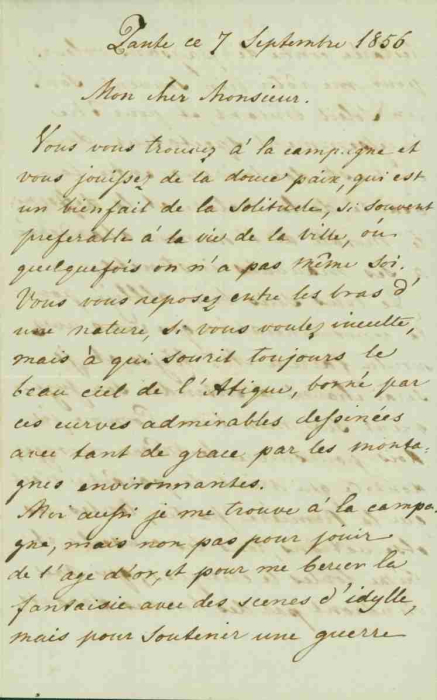 Zante ce 7 Septembre 1856
Mon cher Monsieur.
Vous vous trouvez à la campagne et
vous jouissez de la douce paix, qui est
un bienfait de la solitude, si souvent
preferable à la vie de la ville, où
quelquefois on n'a pas même soi.
Vous vous reposez entre les bras d'
une nature, si vous voulez inculte,
mais à qui sourit toujours le
beau ciel de l'Atique, borné par
ces curves admirables dessinées
avec tant de grace par les monta-
gnes environnantes.
Moi aussi je me trouve à la campa-
gne, mais non pas pour jouir
de l'age d'or, et pour me bercer la
fantaisie avec des scenes d'idylle,
mais pour soutenir une guerre